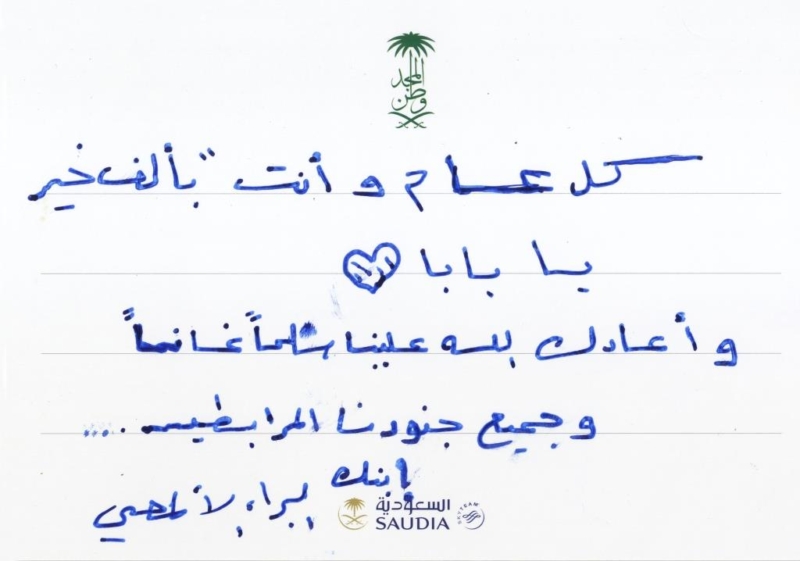 المجد
وطن
كل عام وأنت "بألف خير
يا بابا
وأعادك الله علينا سالماً غانماً
وجميع جنودنا المرابطين.....
إبنك
البراء
السعودية
SAUDIA
SKYTEAM